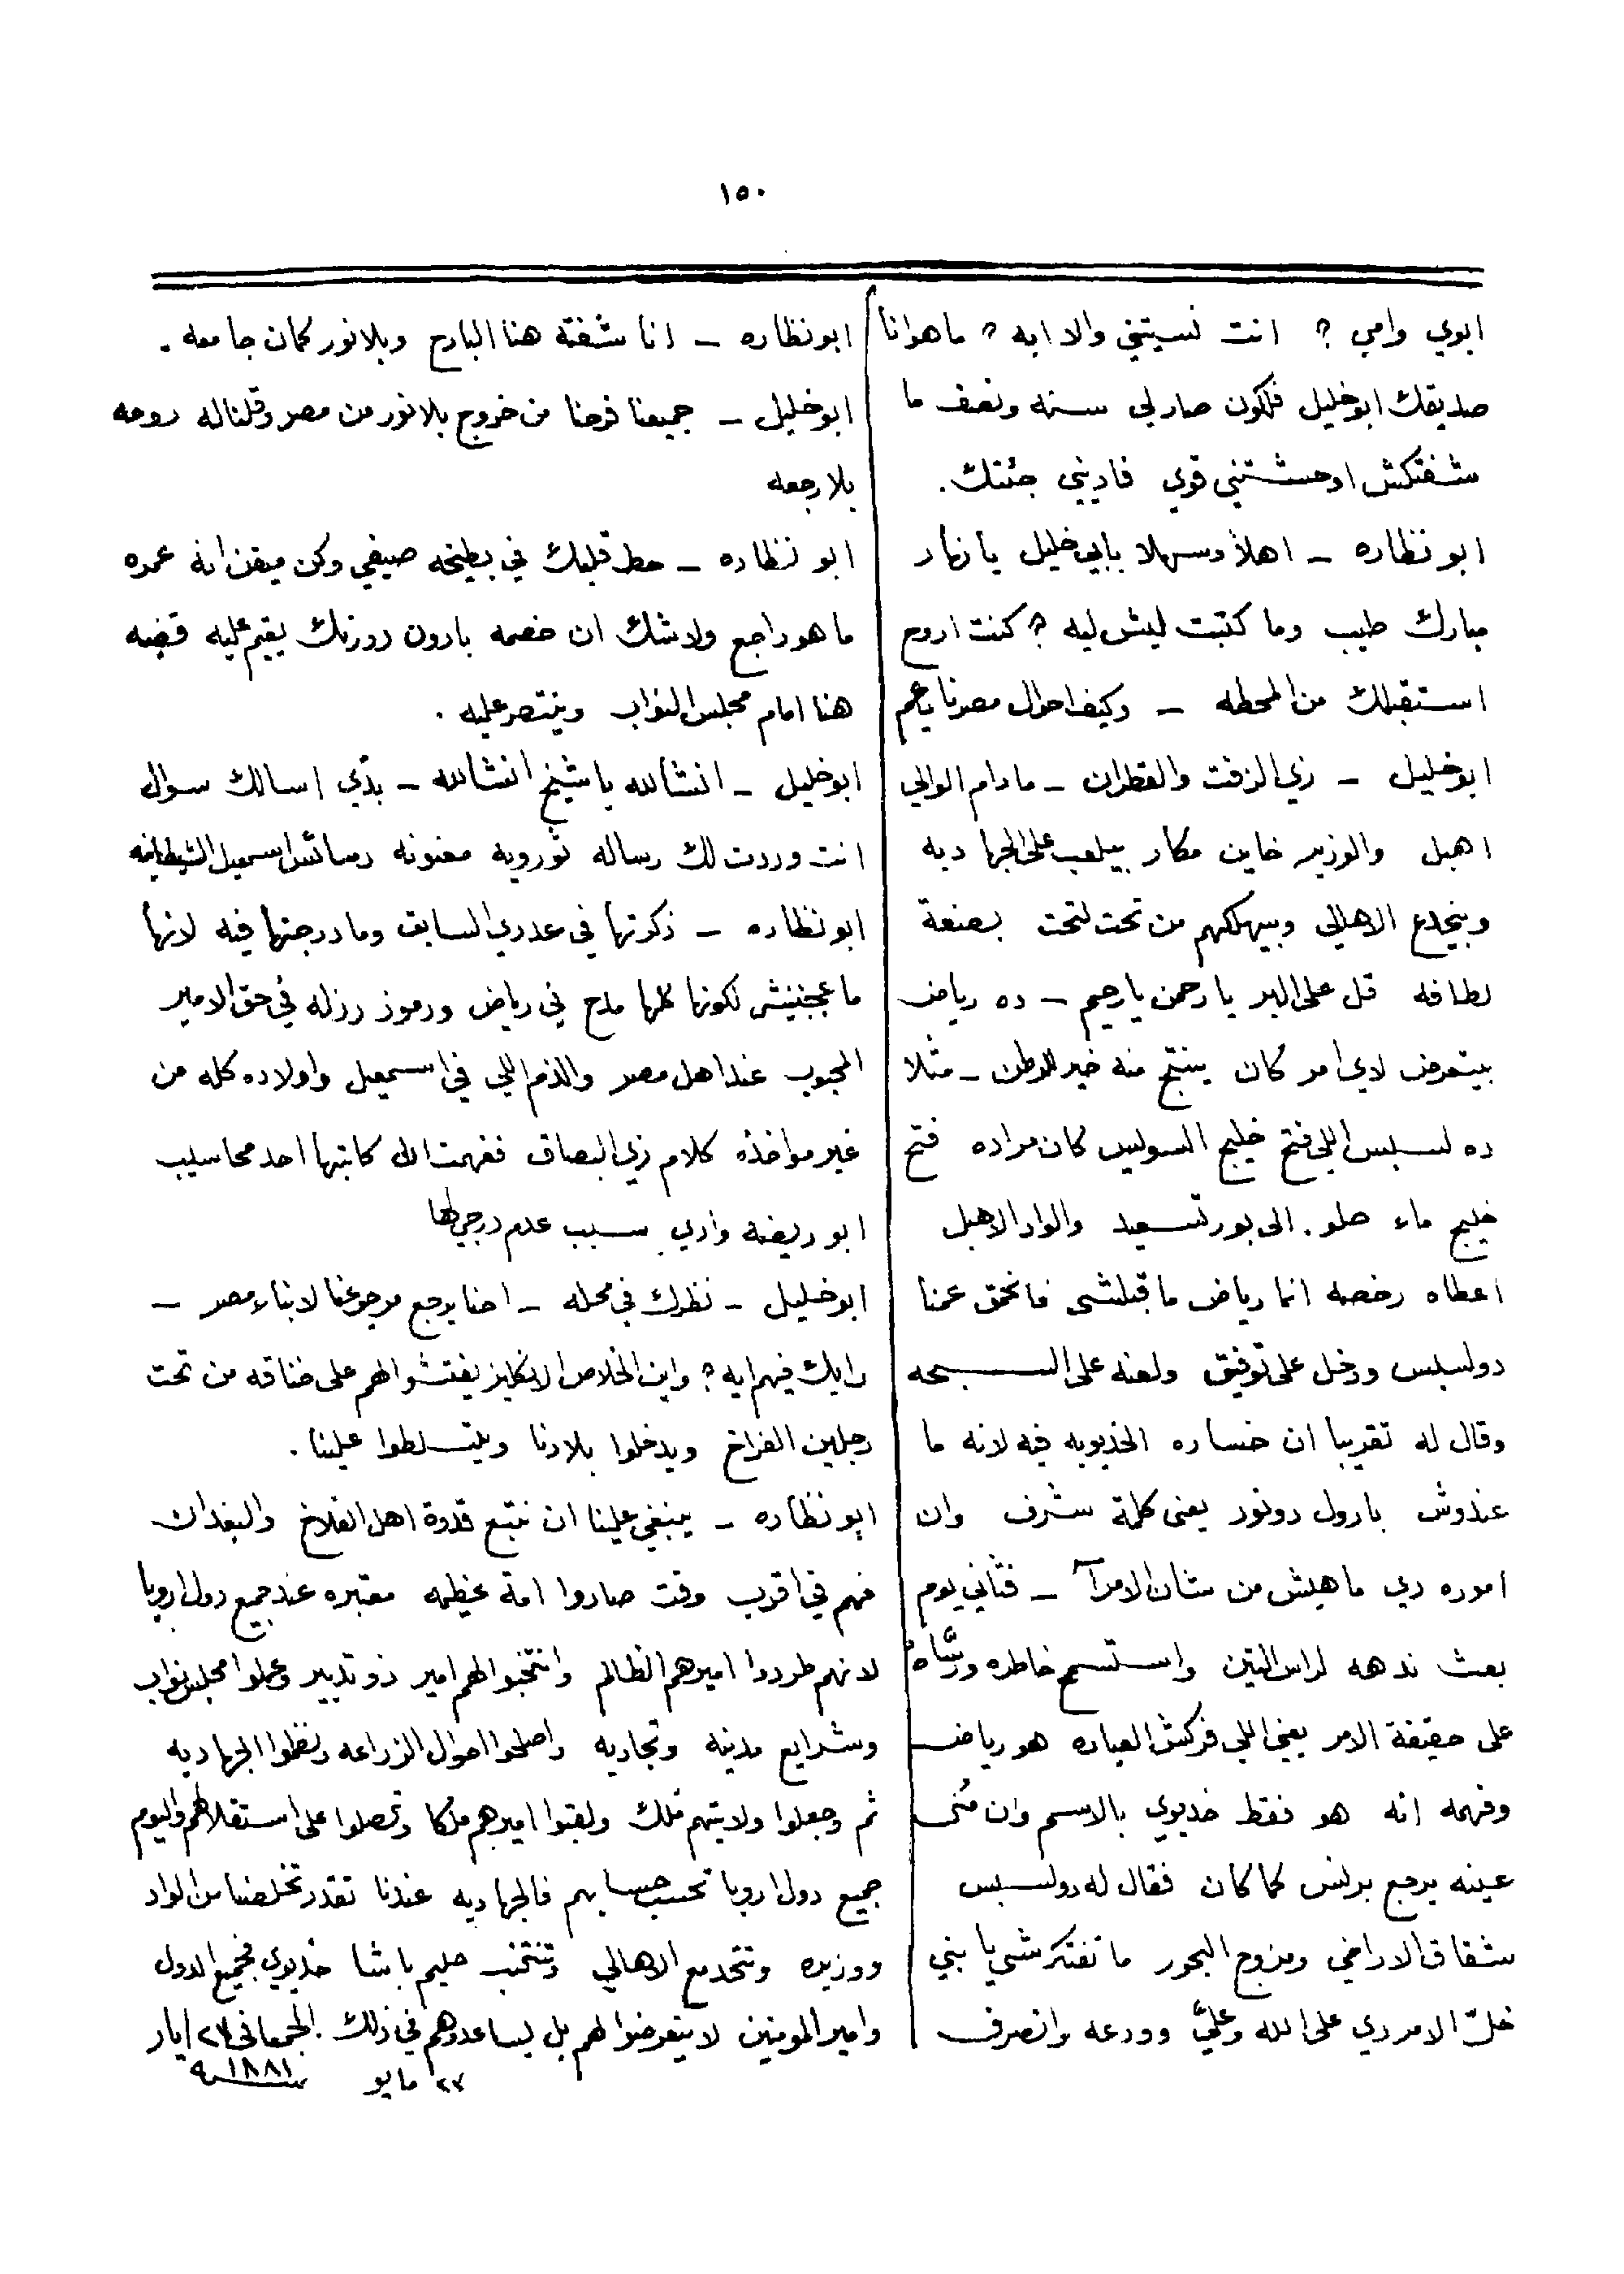 ١٥٠
ابوي وامي ؟ انت نسيتني والا ايه ؟ ماهوانا
صديقك ابوخليل فلكون صارلي سنه ونصف ما
شفتكش اوحشتني قوي فاديني جئتك.
ابو نظاره – اهلاً وسهلا بابي خليل يا نهار
مبارك طيب وما كتبت ليش ليه ؟ كنت اروح
استقبلك من المحطه – وكيف احوال مصرنا ياعم
ابوخليل – زي الزفت والقطران – مادام الوالي
اهبل والوزير خاين مكار بيلعب على الجهاديه
وبيخدع الاهالي وبيهلكهم من تحت لتحت بصنعة
لطافه قل على البر يا رحمن يا رحيم – ده رياض
بيتعرض لاي امر كان ينتج منه خير للوطن – مثلا
ده لسبس اللي فتح خليج السويس كان مراده فتح
خليج ماء حلو. الى بورتسعيد والواد الاهبل
اعطاه رخصه انما رياض ما قبلشي فانحمق عمنا
دولسبس ودخل على توفيق ولعنه على السبحه
وقال له تقريبا ان خساره الخديويه فيه لانه ما
عندوش بارول دونور يعنى كلمة شرف وان
اموره دي ماهيش من شان الامرآ – فثاني يوم
بعث ندهه لراس التين واستسمح خاطره ورسّاه
على حقيقة الامر يعني اللي فركش العباره هو رياض
وفهمه انه هو فقط خديوي بالاسم وان
عينه يرجع برنس كما كان فقال له دولسبس
شقاق الاراضي ومزوج البحور ما تفتكرشي يا بني
خلّ الامر دي على الله وعليّ وودعه وانصرف
ابونظاره – انا شفته هنا البارح وبلانور كمان جا معه .
ابوخليل – جميعنا فرحنا من خروج بلانور من مصر وقلناله روحه
بلا رجعه
ابو نظاره – حط قلبك في بطيخه صيفي وكن ميقن انه عمره
ما هو راجع ولاشك ان خصمه بارون دورنك يقيم عليه قضيه
هنا امام مجلس النواب وينتصر عليه .
ابوخليل – انشالله يا شيخ انشالله – بدّي اسالك سوال
انت وردت لك رساله نورويه معنونه رسائل اسمعيل الشيطانيه
ابونظاره – ذكرتها في عددي السابق وما درجتها فيه لانها
ما عجبتنيش لكونها كلها مدح في رياض ورموز رزله في حق الامير
المحبوب عند اهل مصر والذم اللي في اسمعيل واولاده كله من
غير مواخذه كلام زي البصاق ففهمت ان كاتبها احد محاسيب
ابو ريضه وادي سبب عدم درجي لها
ابوخليل – نظرك في محله – احنا يرجع مرجوعنا لابناء مصر –
رايك فيهم ايه ؟ واين الخلاص الانكليز يفتشوا لهم على خناقه من تحت
رجلين الفراخ ويدخلوا بلادنا ويتسلطوا علينا .
ابو نظاره – ينبغي علينا ان نتبع قدوة اهل الفلاخ والبغدان
فهم في اقرب وقت صاروا امة عظيمه معتبره عند جميع دول اروپا
لانهم طردوا اميرهم الظالم وانتخبوا لهم امير ذو تدبير وعملوا مجلس نواب
وشرايع مدنيه وتجاريه واصلحوا احوال الزراعه ونظموا الجهاديه
ثم وجعلوا ولايتهم ملك ولقبوا اميرهم ملكا وتحصلوا على استقلالهم واليوم
جميع دول اروپا تحسب حسابهم فالجهاديه عندنا تقدر تخلصنا من الواد
ووزيره وتتحد مع الاهالي وتنتخب حليم باشا خديوي فجميع الدول
وامير المومنين لا يتعرضوا لهم بل يساعدوهم في ذلك . ايار
٢٧ مايو سنة ١٨٨١